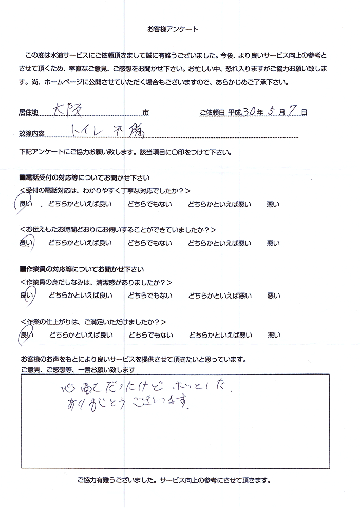 お客様アンケート
この度は水道サービスにご依頼頂きまして誠に有難うございました。今後、より良いサービス向上の参考と
させて頂くため、率直なご意見、ご感想をお聞かせ下さい。お忙しい中、恐れ入りますがご協力お願い致しま
す。尚、ホームページに公開させていただく場合もございますので、あらかじめご了承下さい。
居住地 大阪 市 ご依頼日 平成 30年 5月 7日
故障内容 トイレ
下記アンケートにご協力お願い致します。該当項目に〇印をつけて下さい。
■電話受付の対応等についてお聞かせ下さい
<受付の電話対応は、わかりやすく丁寧な対応でしたか?>
良い どちらかといえば良い どちらでもない どちらかといえば悪い 悪い
<お伝えしたお時間どおりにお伺いすることができていましたか?>
良い どちらかといえば良い どちらでもない どちらかといえば悪い 悪い
■作業員の対応等についてお聞かせ下さい
<作業員の身だしなみは、清潔感がありましたか?>
良い どちらかといえば良い どちらでもない どちらかといえば悪い 悪い
<作業の仕上がりは、ご満足いただけましたか?>
良い どちらかといえば良い どちらでもない どちらかといえば悪い 悪い
お客様のお声をもとにより良いサービスを提供させて頂きたいと思っています。
ご意見、ご感想等、一言お願い致します
心配だったけど ホッとした。
ありがとうございます。
ご協力有難うございました。サービス向上の参考にさせて頂きます。